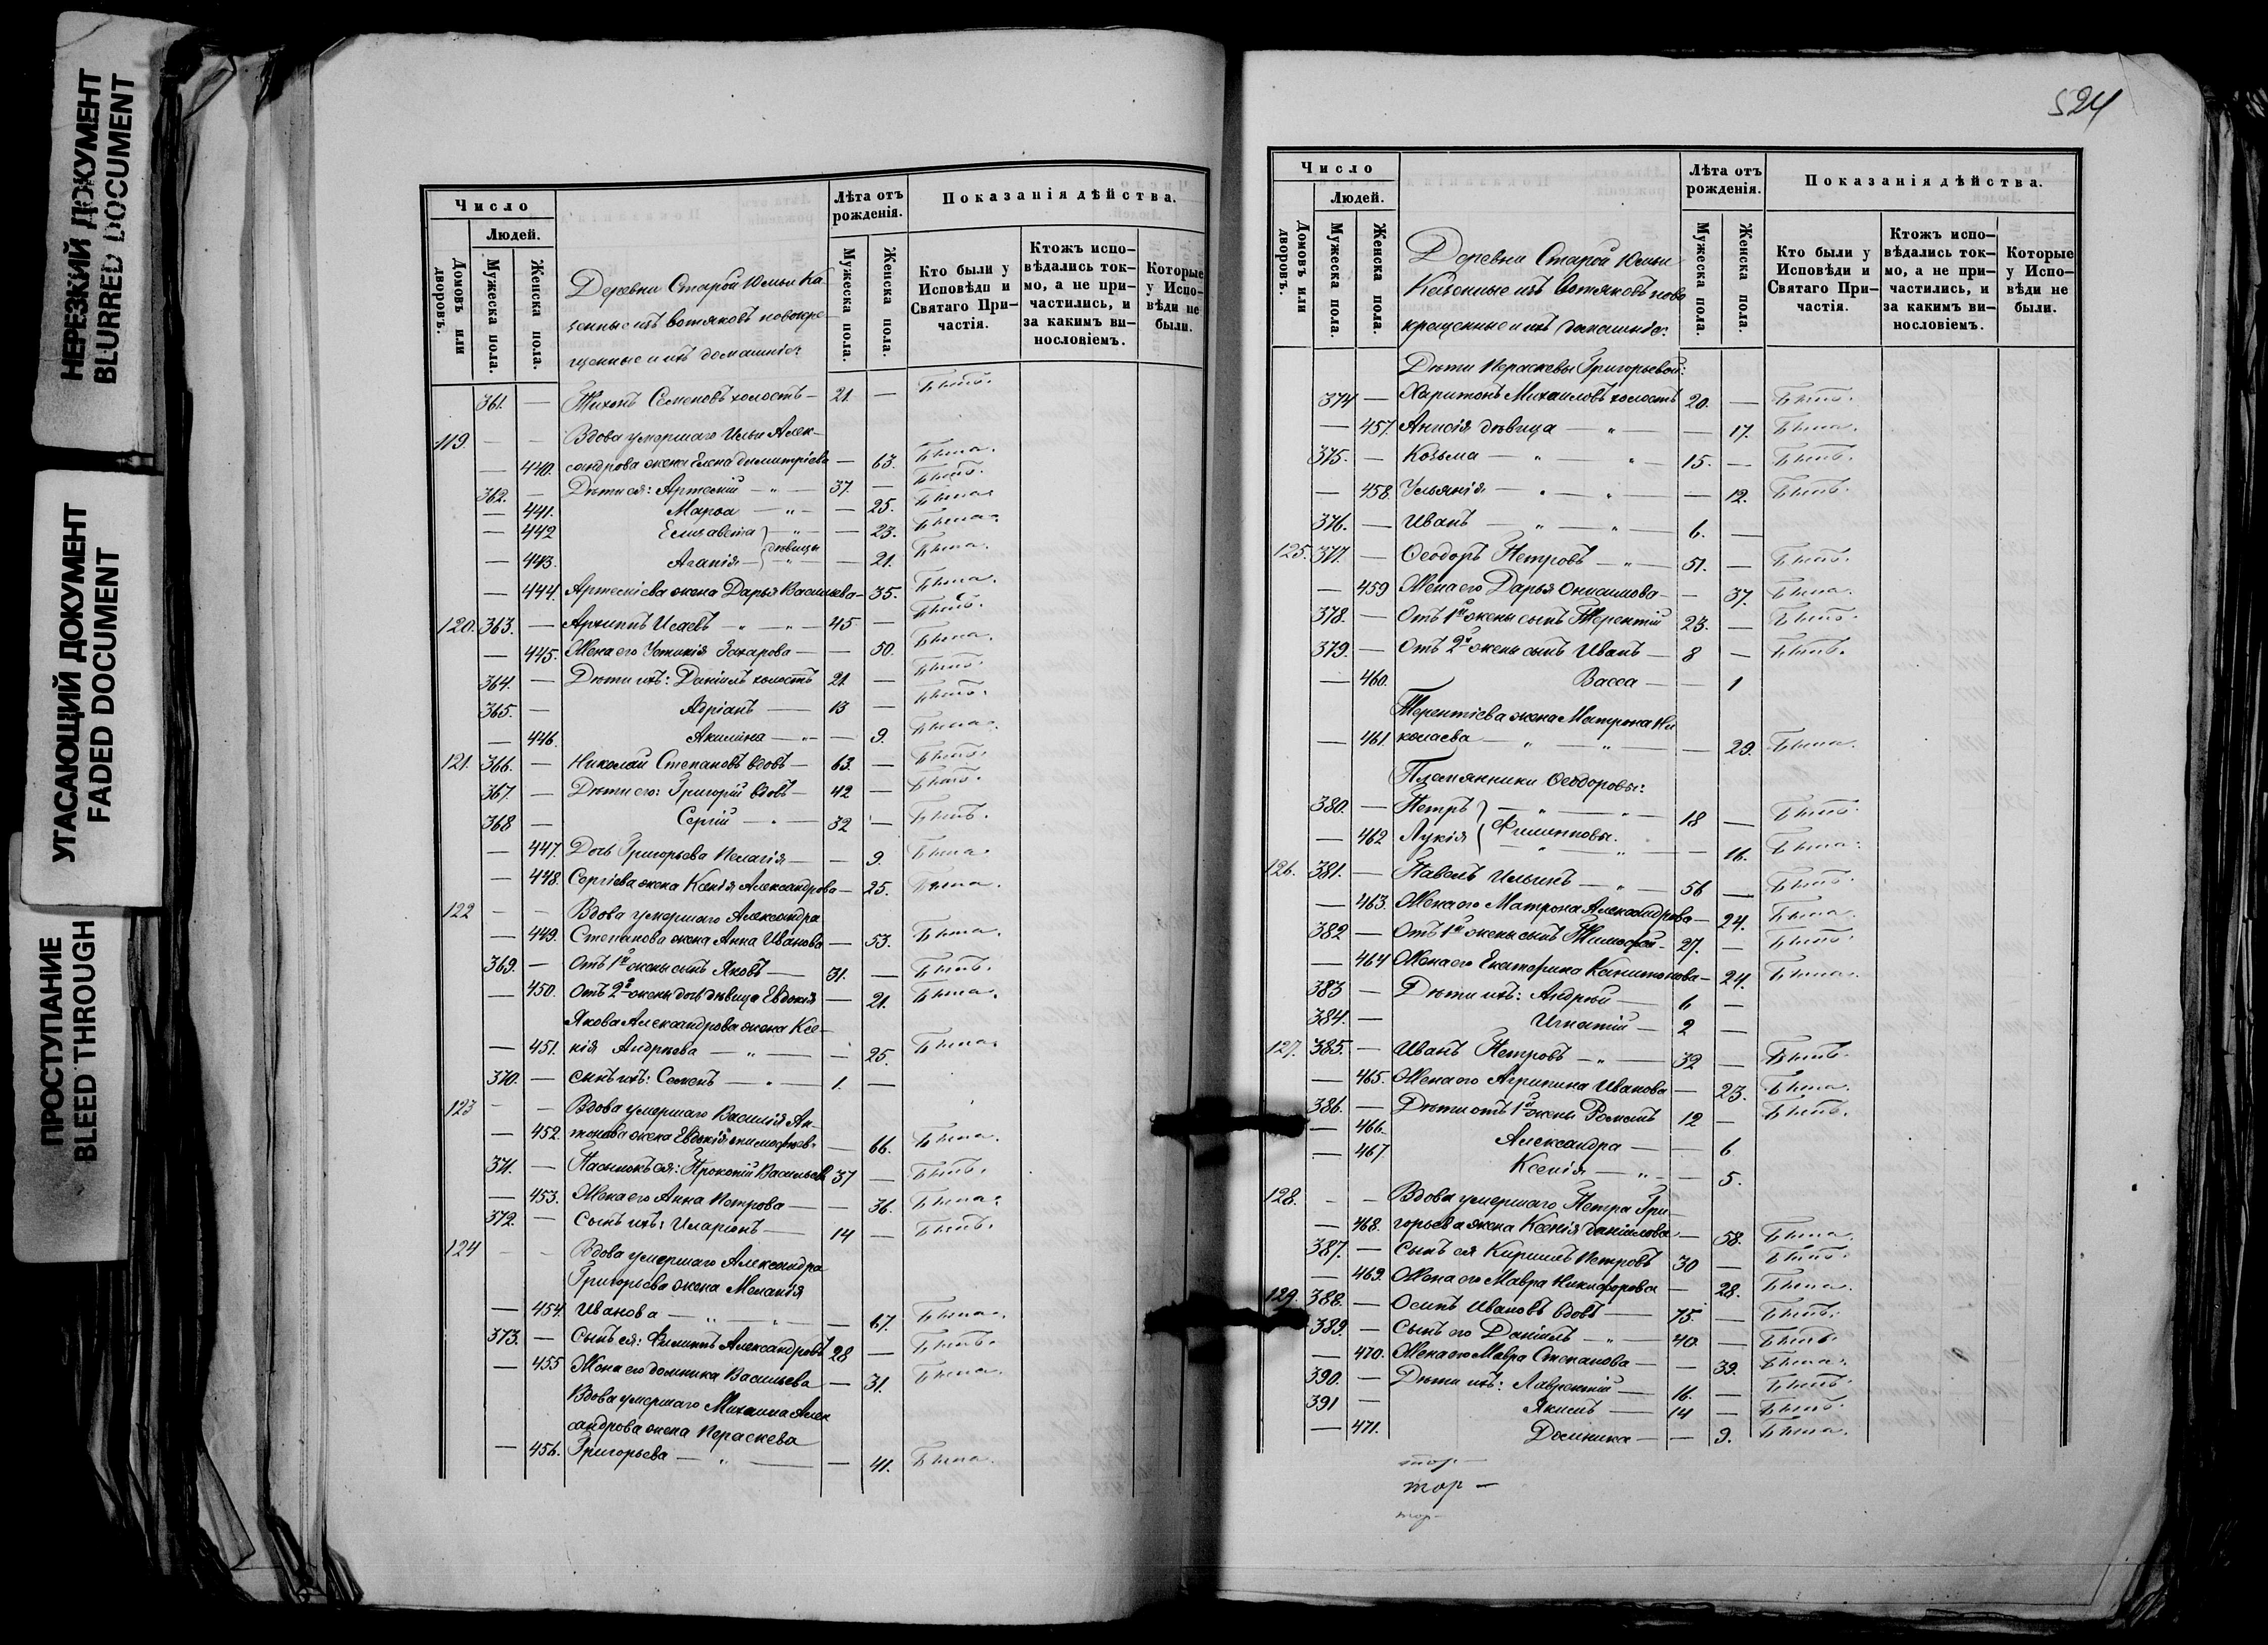 НЕРЕЗКИЙ ДОКУМЕНТ
BLURRED DOCUMENT
УГАСАЮЩИЙ ДОКУМЕНТ
FADED DOCUMENT
ПРОСТУПАНИЕ
BLEED THROUGH
Число
Людей.
Домовъ или дворовъ.
Мужеска пола.
Женска пола.
Деревни Старой Юмьи Ка
зенные изъ вотяковъ новокре
щенные и ихъ домашніе:
Лѣта отъ рожденія.
Мужеска пола.
Женска пола.
Показанія дѣйства.
Кто были у Исповѣди и Святаго При-частія.
Ктожъ испо-вѣдались ток-мо, а не при-частились, и за какимъ ви-нословіемъ.
Которые у Испо-вѣди не были.
361. — Тихонъ Семеновъ холостъ — 21. — Былъ.
119. — — Вдова умершаго Ильи Алек-
— 440. сандрова жена Елена Димитріева — 63. Была.
362. — Дѣти ея: Артемій — " — 37. — Былъ.
— 441. Марѳа — " — — 25. Была.
— 442 Елисавета — " — — 23. Была.
дѣвицы
— 443. Агапія — " — — 21. Была.
— 444. Артеміева жена Дарья Васильева — 35. Была.
120. 363. — Архиппъ Исаевъ — " — " — 45 — Былъ.
— 445. Жена его Устинія Захарова — — 50. Была.
364. — Дѣти ихъ: Даніилъ холостъ 21. — Былъ.
365. — Адріанъ — 13 — Былъ.
— 446. Акилина — " — — 9. Была.
121. 366. — Николай Степановъ вдовъ — 63. — Былъ.
367. — Дѣти его: Григорій вдовъ — 42 — Былъ.
368 — Сергій — " — 32 — Былъ.
— 447. Дочь Григорьева Пелагія — — 9. Была.
— 448. Сергіева жена Ксенія Александрова — 25. Была.
122 — — Вдова умершаго Александра
— 449. Степанова жена Анна Иванова — 53. Была.
369. — Отъ 1й жены сынъ Яковъ — 31. — Былъ.
— 450. Отъ 2й жены дочь дѣвица Евдокія — 21. Была.
Якова Александрова жена Ксе-
— 451. нія Андреева — " — — 25. Была.
370. — Сынъ ихъ: Семенъ — " — 1. —
123 — — Вдова умершаго Василія Ан-
— 452. тонова жена Евдокія Тимоѳеев. — 66. Была.
371. — Пасынокъ ея: Прокопій Васильевъ 37 — Былъ.
— 453. Жена его Анна Петрова — — 36. Была.
372. — Сынъ ихъ: Иларіонъ — 14 — Былъ.
124 — — Вдова умершаго Александра
Григорьева жена Меланія
— 454 Иванова — " — " — — 67. Была.
373. — Сынъ ея: Филиппъ Александровъ 28 — Былъ.
— 455 Жена его Домника Васильева — 31. Была.
Вдова умершаго Михаила Алек
сандрова жена Параскева
— 456. Григорьева — " — — 41. Была.
524
Число
Людей.
Домовъ или дворовъ.
Мужеска пола.
Женска пола.
Деревни Старой Юмьи
Казенные изъ Вотяковъ ново
крещенные и ихъ домашніе:
Лѣта отъ рожденія.
Мужеска пола.
Женска пола.
Показанія дѣйства.
Кто были у Исповѣди и Святаго При-частія.
Ктожъ испо-вѣдались ток-мо, а не при-частились, и за какимъ ви-нословіемъ.
Которые у Испо-вѣди не были.
Дѣти Параскевы Григорьевой:
374 — Харитонъ Михаиловъ холостъ 20. — Былъ.
— 457. Анисія дѣвица — " — — 17. Была.
375. — Козьма — " — " — 15. — Былъ.
— 458. Ульянія — " — " — — 12. Былъ.
376. — Иванъ — " — " — 6. —
125. 377. — Ѳеодоръ Петровъ — " — 51. — Былъ.
— 459 Жена его Дарья Онисимова — — 37. Была.
378. — Отъ 1й жены сынъ Терентій 23. — Былъ.
379. — Отъ 2й жены сынъ Иванъ — 8 — Былъ.
— 460. Васса — — 1
Терентіева жена Матрона Ни
— 461. колаева — " — " — — 29. Была.
Племянники Ѳеодоровы:
380. — Петръ — " — " — 18 — Былъ.
Филипповы.
— 462 Лукія — " — " — — 16. Была.
126. 381. — Павелъ Ильинъ — " — 56 — Былъ.
— 463. Жена его Матрона Александрова — 24. Была.
382 — Отъ 1й жены сынъ Тимоѳей — 27. — Былъ.
— 464 Жена его Екатерина Капитонова — 24. Была.
383 — Дѣти ихъ: Андрей — 6 —
384. — Игнатій — 2 —
127. 385. — Иванъ Петровъ — " — 32 — Былъ.
— 465. Жена его Агрипина Иванова — 23. Была.
386. — Дѣти отъ 1й жены Романъ 12 — Былъ.
— 466. Александра — — 6
— 467 Ксенія — " — — 5.
128. — — Вдова умершаго Петра Гри-
— 468. горьева жена Ксенія Даніилова — 58. Была.
387. — Сынъ ея Кириллъ Петровъ 30 — Былъ.
— 469. Жена его Мавра Никифорова — 28. Была.
129. 388. — Осипъ Ивановъ вдовъ — 75. — Былъ.
389. — Сынъ его Даніилъ — " — 40. — Былъ.
— 470. Жена его Мавра Степанова — — 39. Была.
390. — Дѣти ихъ: Лаврентій — 16. — Былъ.
391 — Якимъ — 14 — Былъ.
— 471. Домника — — 9. Была.
тор —
тор —
тор —